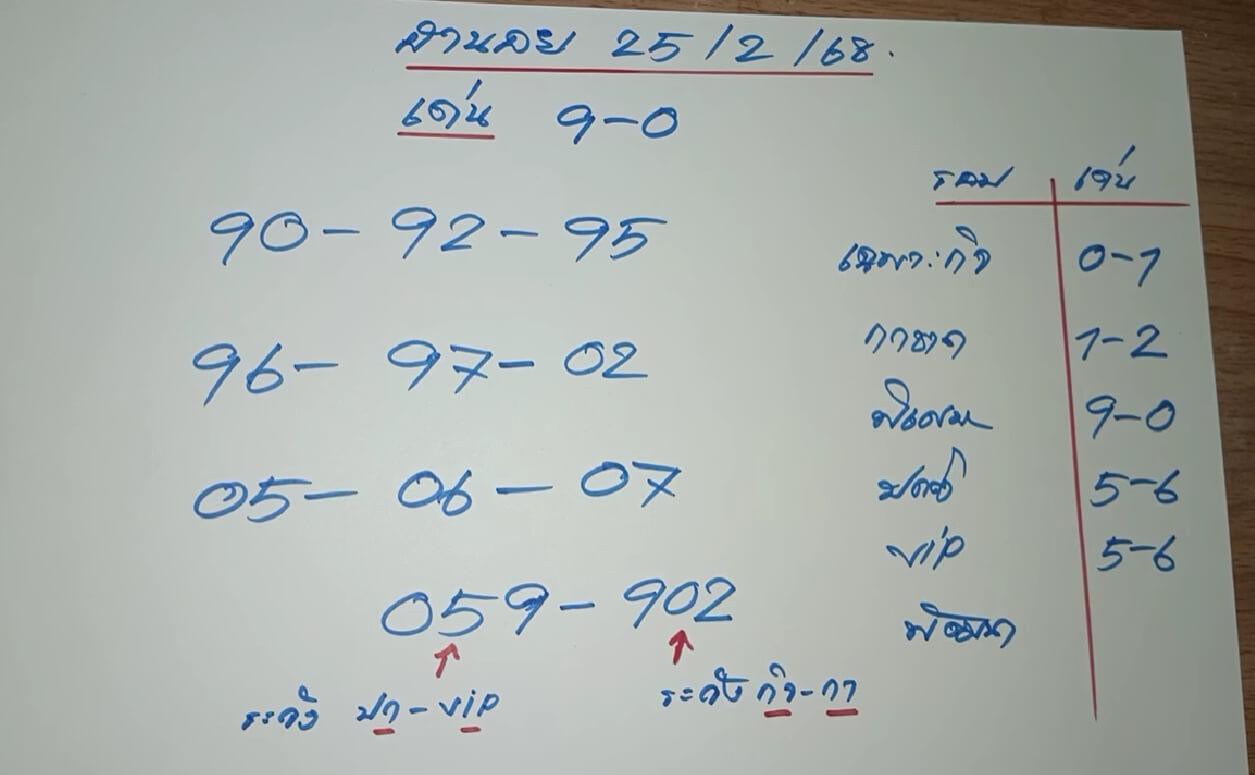 ฮานอย 25/2/68.
เด่น 9-0
90- 92-95
96- 97- 02
05- 06- 07
059-902
ระวัง ปก-vip
ระวัง กิจ-กา
รอบ เด่น
เฉพาะกิจ 0-1
กาชาด 1-2
พิเศษ 9-0
ปกติ 5-6
vip 5-6
พัฒนา